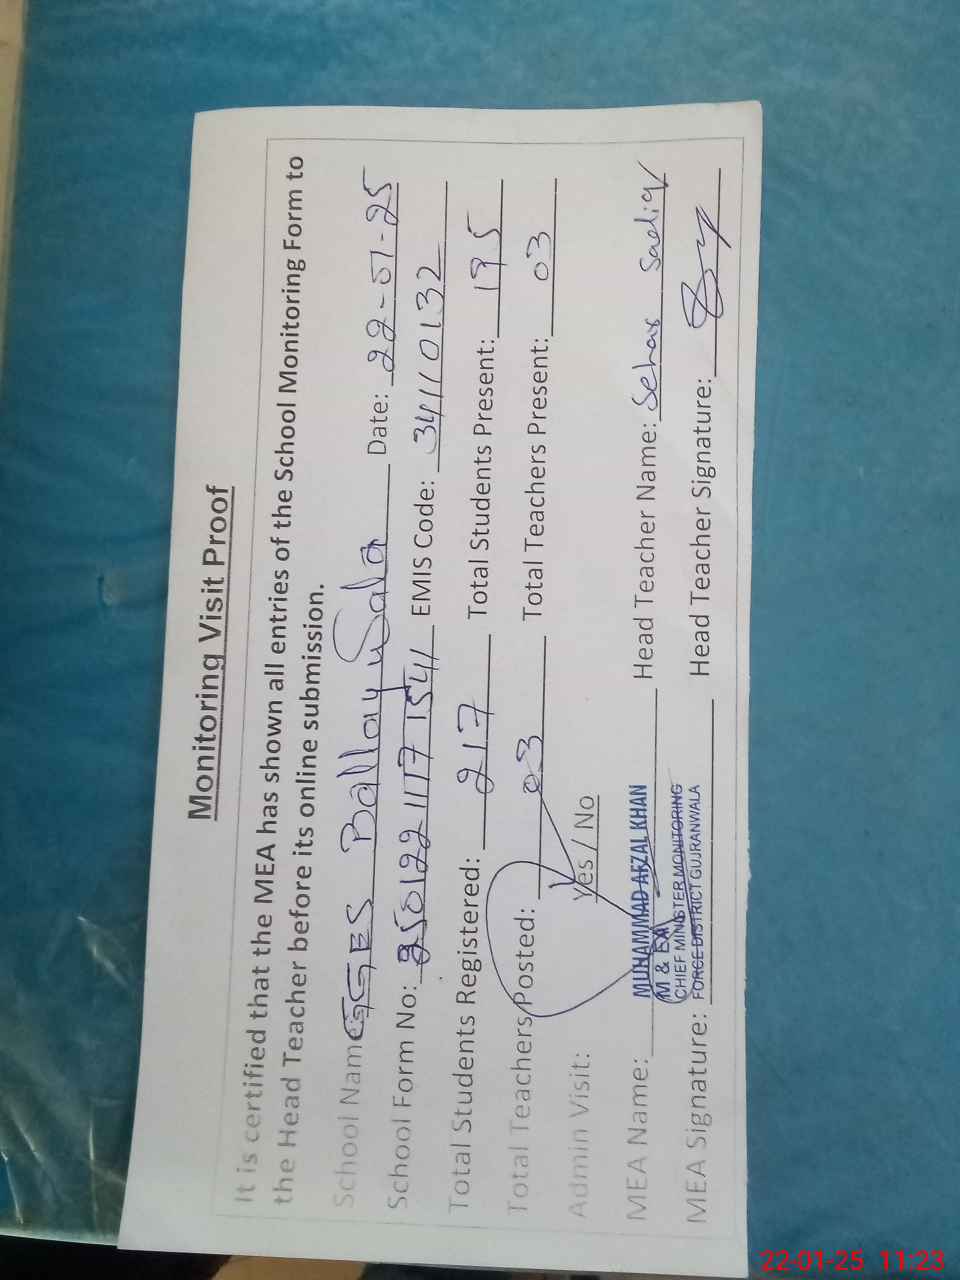 Monitoring Visit Proof
It is certified that the MEA has shown all entries of the School Monitoring Form to
the Head Teacher before its online submission.
School Name: GGES Ballay Wala Date: 22-01-25
School Form No: 25012211171541 EMIS Code: 34110132
Total Students Registered: 217 Total Students Present: 195
Total Teachers Posted: 03 Total Teachers Present: 03
Admin Visit: Yes / No
MEA Name: MUHAMMAD AFZAL KHAN Head Teacher Name: Sehar Sadiq
M & EA
CHIEF MINISTER MONITORING
MEA Signature: FORCE DISTRICT GUJRANWALA Head Teacher Signature:
22-01-25 11:23